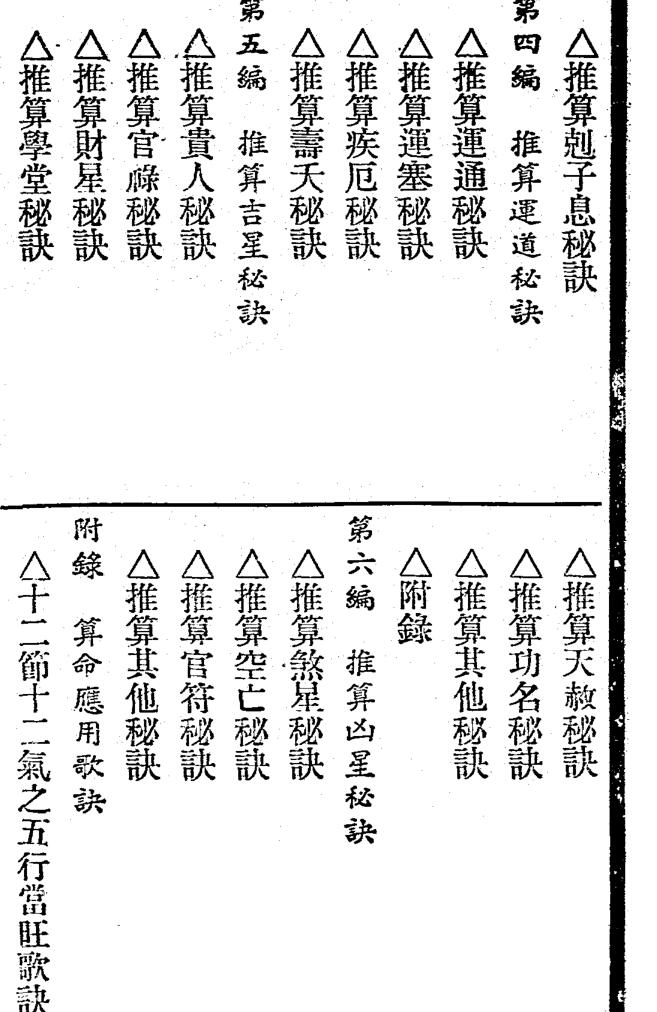 △推算剋子息秘訣
第四編　推算運道秘訣
△推算運通秘訣
△推算運塞秘訣
△推算疾厄秘訣
△推算壽夭秘訣
第五編　推算吉星秘訣
△推算貴人秘訣
△推算官祿秘訣
△推算財星秘訣
△推算學堂秘訣
△推算天赦秘訣
△推算功名秘訣
△推算其他秘訣
△附錄
第六編　推算凶星秘訣
△推算煞星秘訣
△推算空亡秘訣
△推算官符秘訣
△推算其他秘訣
附錄　算命應用歌訣
△十二節十二氣之五行當旺歌訣